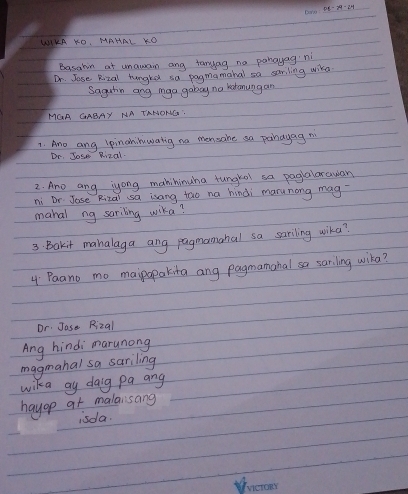 Date: 08-24-24
WIKA KO, MAHAL KO
Basahin at unawain ang tanyag na pahayag ni
Dr. Jose Rizal tungkol sa pagmamahal sa sariling wika.
Sagutin ang mga gabay na katanungan
MGA GABAY NA TANONG:
1. Ano ang ipinahihiwatig na mensahe sa pahayag ni
Dr. Jose Rizal.
2. Ano ang iyong mahihinuha tungkol sa paglalarawan
ni Dr. Jose Rizal sa isang tao na hindi marunong mag-
mahal ng sariling wika?
3. Bakit mahalaga ang pagmamahal sa sariling wika?
4. Paano mo maipapakita ang pagmamahal sa sariling wika?
Dr. Jose Rizal
Ang hindi marunong
magmahal sa sariling
wika ay daig pa ang
hayop at malansang
isda.
VICTORY